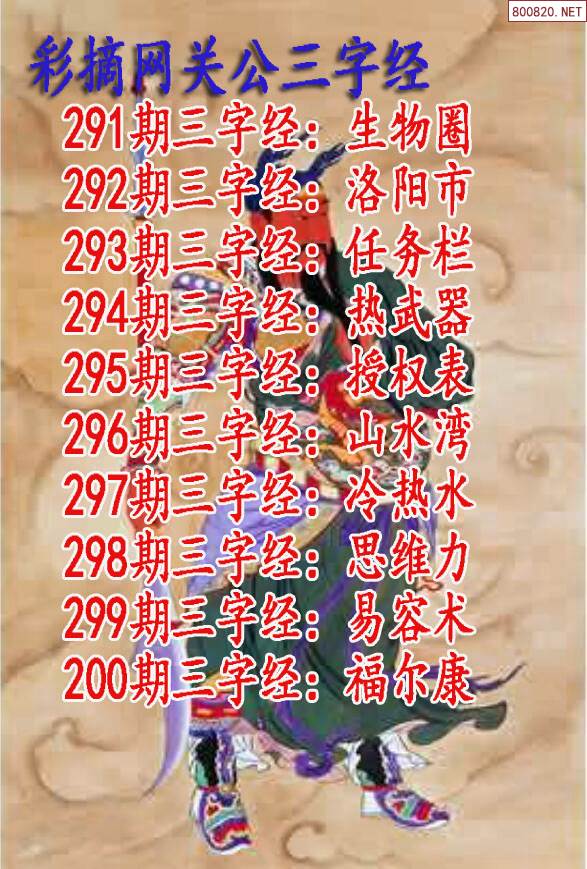 800820.NET
彩摘网关公三字经
291期三字经：生物圈
292期三字经：洛阳市
293期三字经：任务栏
294期三字经：热武器
295期三字经：授权表
296期三字经：山水湾
297期三字经：冷热水
298期三字经：思维力
299期三字经：易容术
200期三字经：福尔康